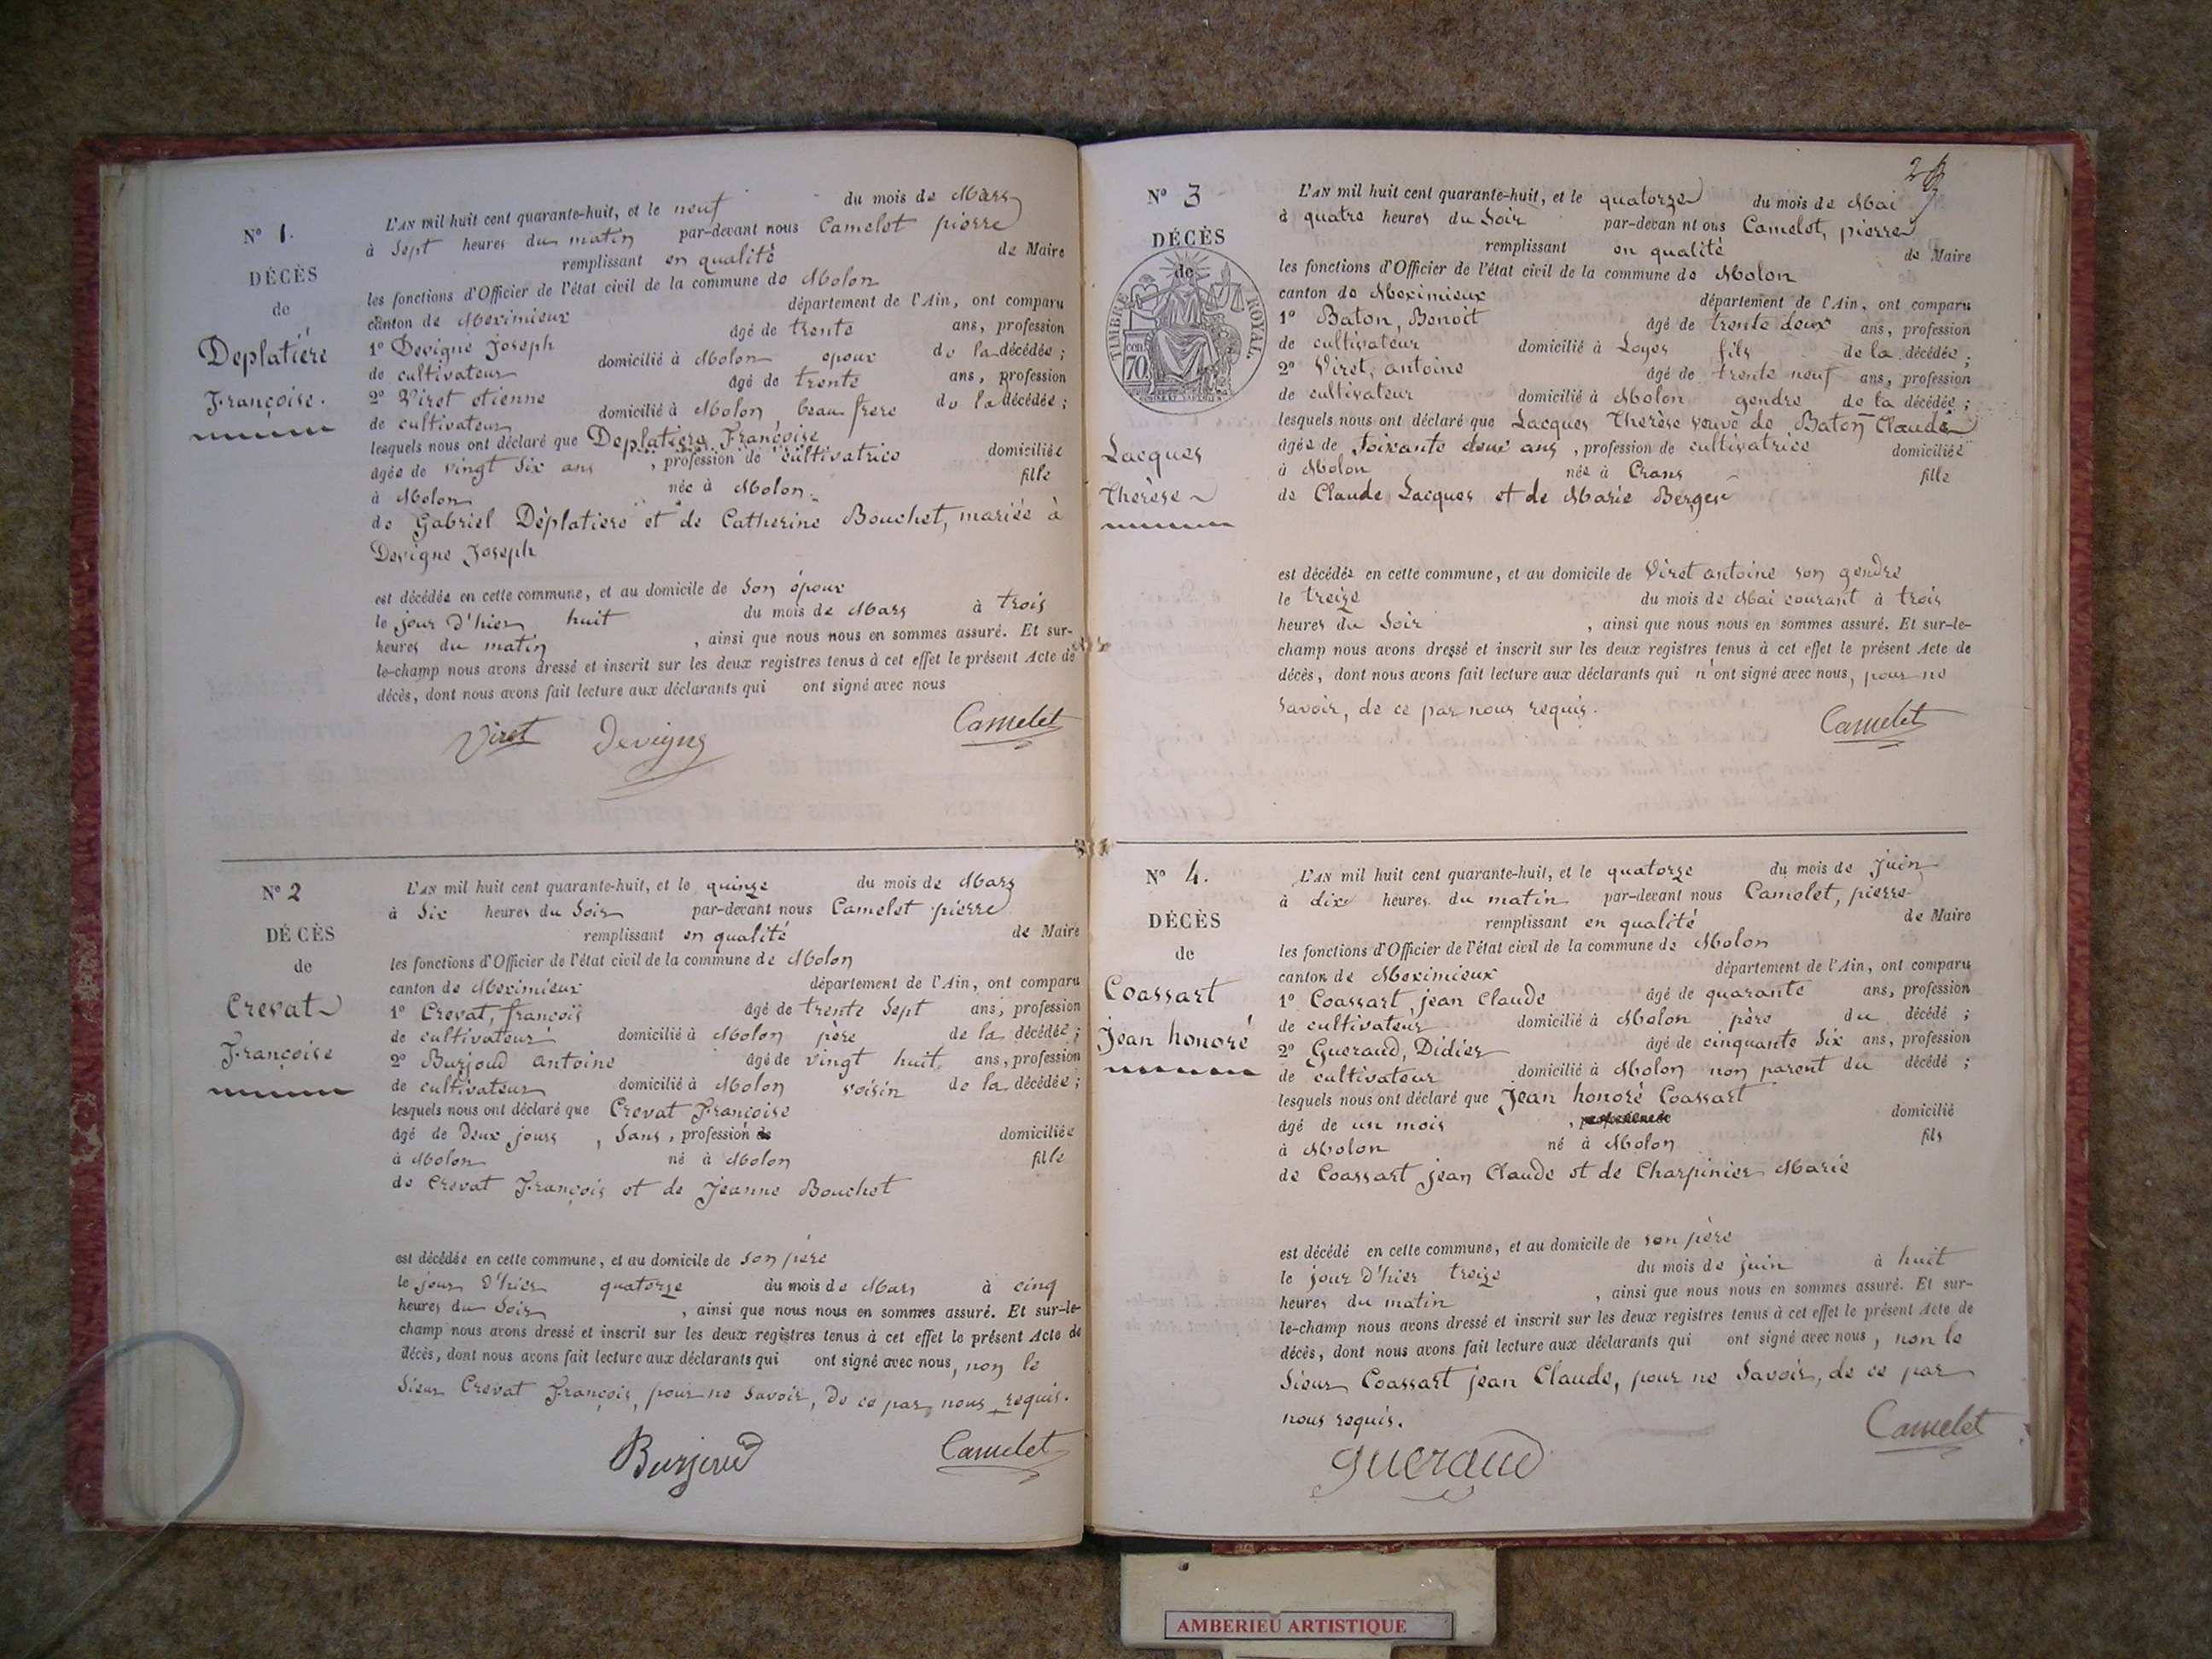 Nº 1.
DÉCÈS
de
Deplatière
Françoise.
L'AN mil huit cent quarante-huit, et le neuf du mois de Mars
à Sept heures du matin par-devant nous Camelet pierre
remplissant en qualité de Maire
les fonctions d'Officier de l'état civil de la commune de Molon
canton de Meximieux département de l'Ain, ont comparu
1º Devigne Joseph âgé de trente ans, profession
de cultivateur domicilié à Molon epoux de la décédée ;
2º Viret etienne âgé de trente ans, profession
de cultivateur domicilié à Molon beau frere de la décédée ;
lesquels nous ont déclaré que Deplatiere Françoise
âgée de vingt Six ans , profession de cultivatrice domiciliée
à Molon née à Molon fille
de Gabriel Déplatiere et de Catherine Bouchet, mariée à
Devigne Joseph
est décédée en cette commune, et au domicile de Son époux
le jour d'hier huit du mois de Mars à trois
heures du matin , ainsi que nous nous en sommes assuré. Et sur-
le-champ nous avons dressé et inscrit sur les deux registres tenus à cet effet le présent Acte de
décès, dont nous avons fait lecture aux déclarants qui ont signé avec nous
Viret Devigne Camelet
Nº 2
DÉCÈS
de
Crevat
Françoise
L'AN mil huit cent quarante-huit, et le quinze du mois de Mars
à Six heures du Soir par-devant nous Camelet pierre
remplissant en qualité de Maire
les fonctions d'Officier de l'état civil de la commune de Molon
canton de Meximieux département de l'Ain, ont comparu
1º Crevat, françois âgé de trente Sept ans, profession
de cultivateur domicilié à Molon père de la décédée ;
2º Burjoud antoine âgé de vingt huit ans, profession
de cultivateur domicilié à Molon voisin de la décédée ;
lesquels nous ont déclaré que Crevat Françoise
âgé de Deux jours , Sans , profession de domiciliée
à Molon né à Molon fille
de Crevat François et de Jeanne Bouchet
est décédée en cette commune, et au domicile de Son père
le jour d'hier quatorze du mois de Mars à cinq
heures du Soir , ainsi que nous nous en sommes assuré. Et sur-le-
champ nous avons dressé et inscrit sur les deux registres tenus à cet effet le présent Acte de
décès, dont nous avons fait lecture aux déclarants qui ont signé avec nous, non le
Sieur Crevat François, pour ne Savoir, de ce par nous requis.
Burjoud Camelet
2
Nº 3
DÉCÈS
de
TIMBRE ROYAL
70 cen.
Lacques
Therèse
L'AN mil huit cent quarante-huit, et le quatorze du mois de Mai
à quatre heures du Soir par-devan nt ous Camelet, pierre
remplissant en qualité de Maire
les fonctions d'Officier de l'état civil de la commune de Molon
canton de Meximieux département de l'Ain, ont comparu
1º Baton, Benoit âgé de trente deux ans, profession
de cultivateur domicilié à Loyes fils de la décédée ;
2º Viret, antoine âgé de trente neuf ans, profession
de cultivateur domicilié à Molon gendre de la décédée ;
lesquels nous ont déclaré que Lacques Therèse veuve de Baton Claude
âgée de Soixante deux ans , profession de cultivatrice domiciliée
à Molon née à Crans fille
de Claude Lacques et de Marie Berger
est décédée en cette commune, et au domicile de Viret antoine son gendre
le treize du mois de Mai courant à trois
heures du Soir , ainsi que nous nous en sommes assuré. Et sur-le-
champ nous avons dressé et inscrit sur les deux registres tenus à cet effet le présent Acte de
décès, dont nous avons fait lecture aux déclarants qui n'ont signé avec nous, pour ne
Savoir, de ce par nous requis.
Camelet
Nº 4.
DÉCÈS
de
Coassart
Jean honoré
L'AN mil huit cent quarante-huit, et le quatorze du mois de Juin
à dix heures du matin par-devant nous Camelet, pierre
remplissant en qualité de Maire
les fonctions d'Officier de l'état civil de la commune de Molon
canton de Meximieux département de l'Ain, ont comparu
1º Coassart, jean Claude âgé de quarante ans, profession
de cultivateur domicilié à Molon père du décédé ;
2º Gueraud, Didier âgé de cinquante Six ans, profession
de cultivateur domicilié à Molon non parent du décédé ;
lesquels nous ont déclaré que Jean honoré Coassart
âgé de un mois , profession de domicilié
à Molon né à Molon fils
de Coassart jean Claude et de Charpinier Marie
est décédé en cette commune, et au domicile de son père
le jour d'hier treize du mois de juin à huit
heures du matin , ainsi que nous nous en sommes assuré. Et sur-
le-champ nous avons dressé et inscrit sur les deux registres tenus à cet effet le présent Acte de
décès, dont nous avons fait lecture aux déclarants qui ont signé avec nous, non le
Sieur Coassart jean Claude, pour ne Savoir, de ce par
nous requis.
Gueraud Camelet
AMBERIEU ARTISTIQUE